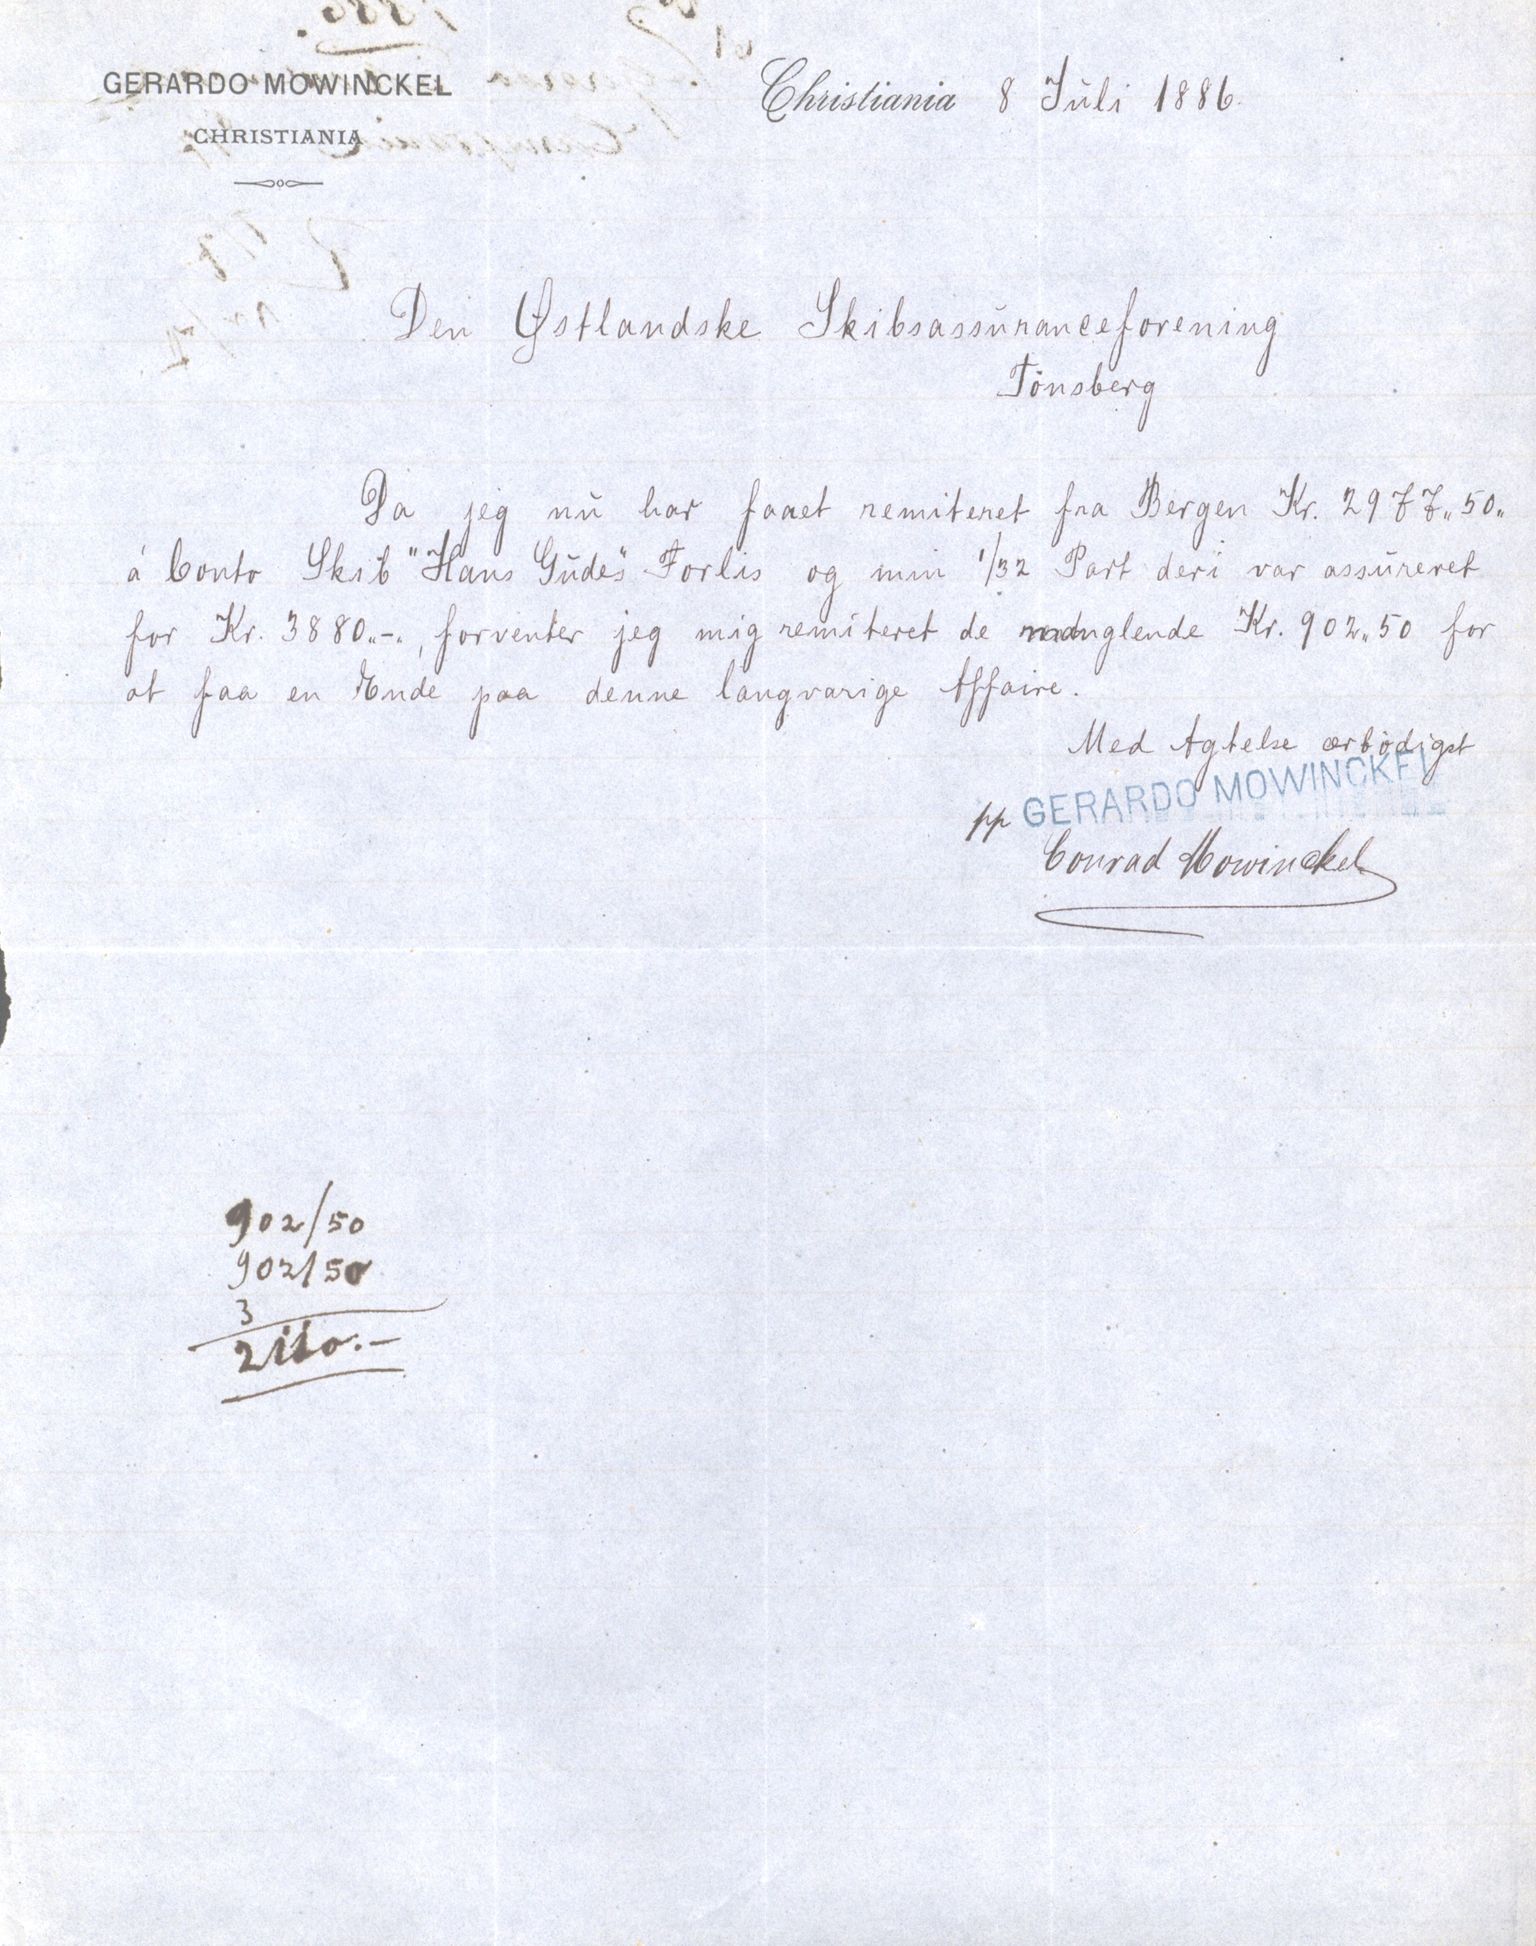 GERARDO MOWINCKEL
CHRISTIANIA
Christiania 8 Juli 1886.
Den Østlandske Skibsassuranceforening
Tönsberg
Da jeg nu har faaet remiteret fra Bergen Kr. 2977„50„
á Conto Skib "Hans Gudes" Forlis og min 1/32 Part deri var assureret
for Kr. 3880„-„, forventer jeg mig remiteret de manglende Kr. 902„50 for
at faa en Ende paa denne langvarige Affaire.
Med Agtelse ærbödigst
pp GERARDO MOWINCKEL
Conrad Mowinckel
902/50
902/50
3
2110.-